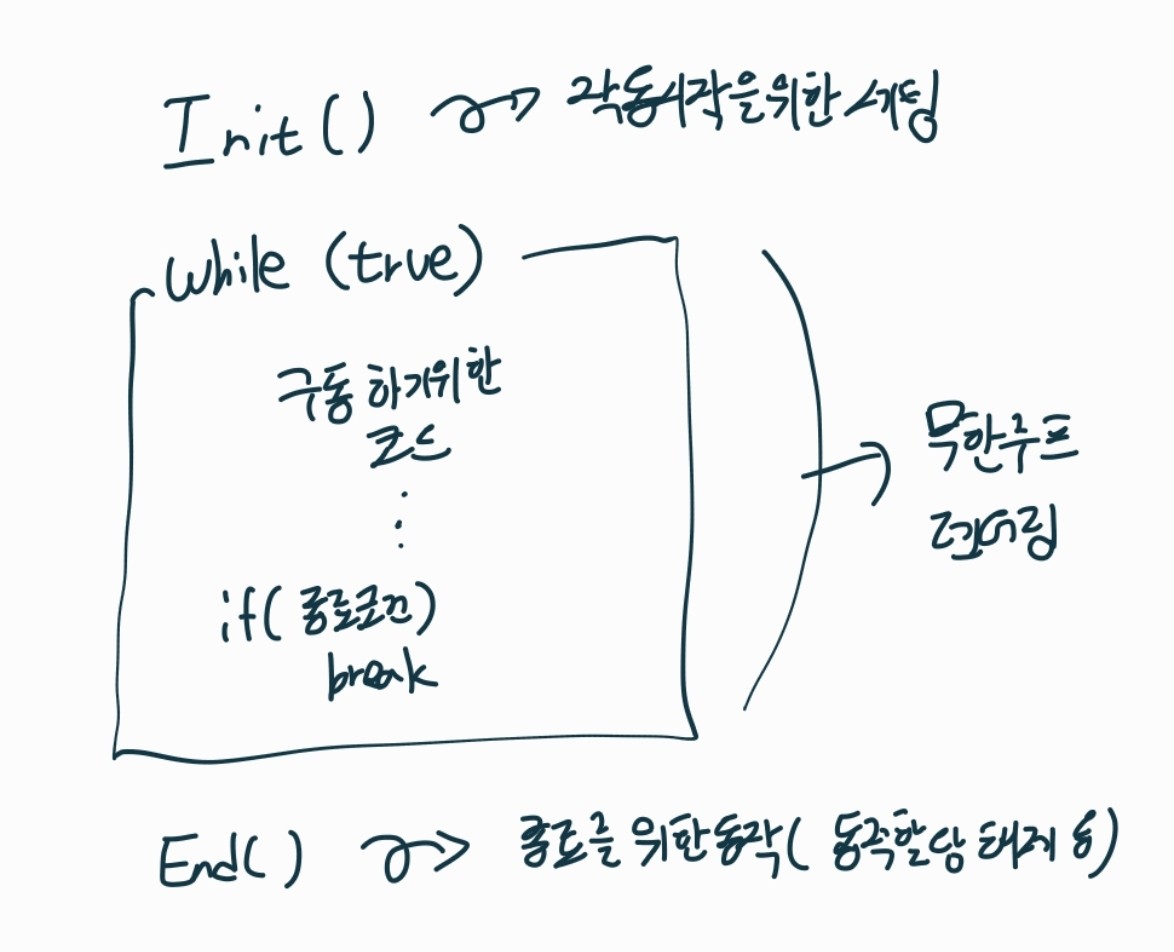 Init() 작동시작을위한 세팅
while (true)
구동 하기위한
코드
if( 종료조건)
break
무한루프
렌더링
End() 종료를 위한동작( 동적할당 해제 등)